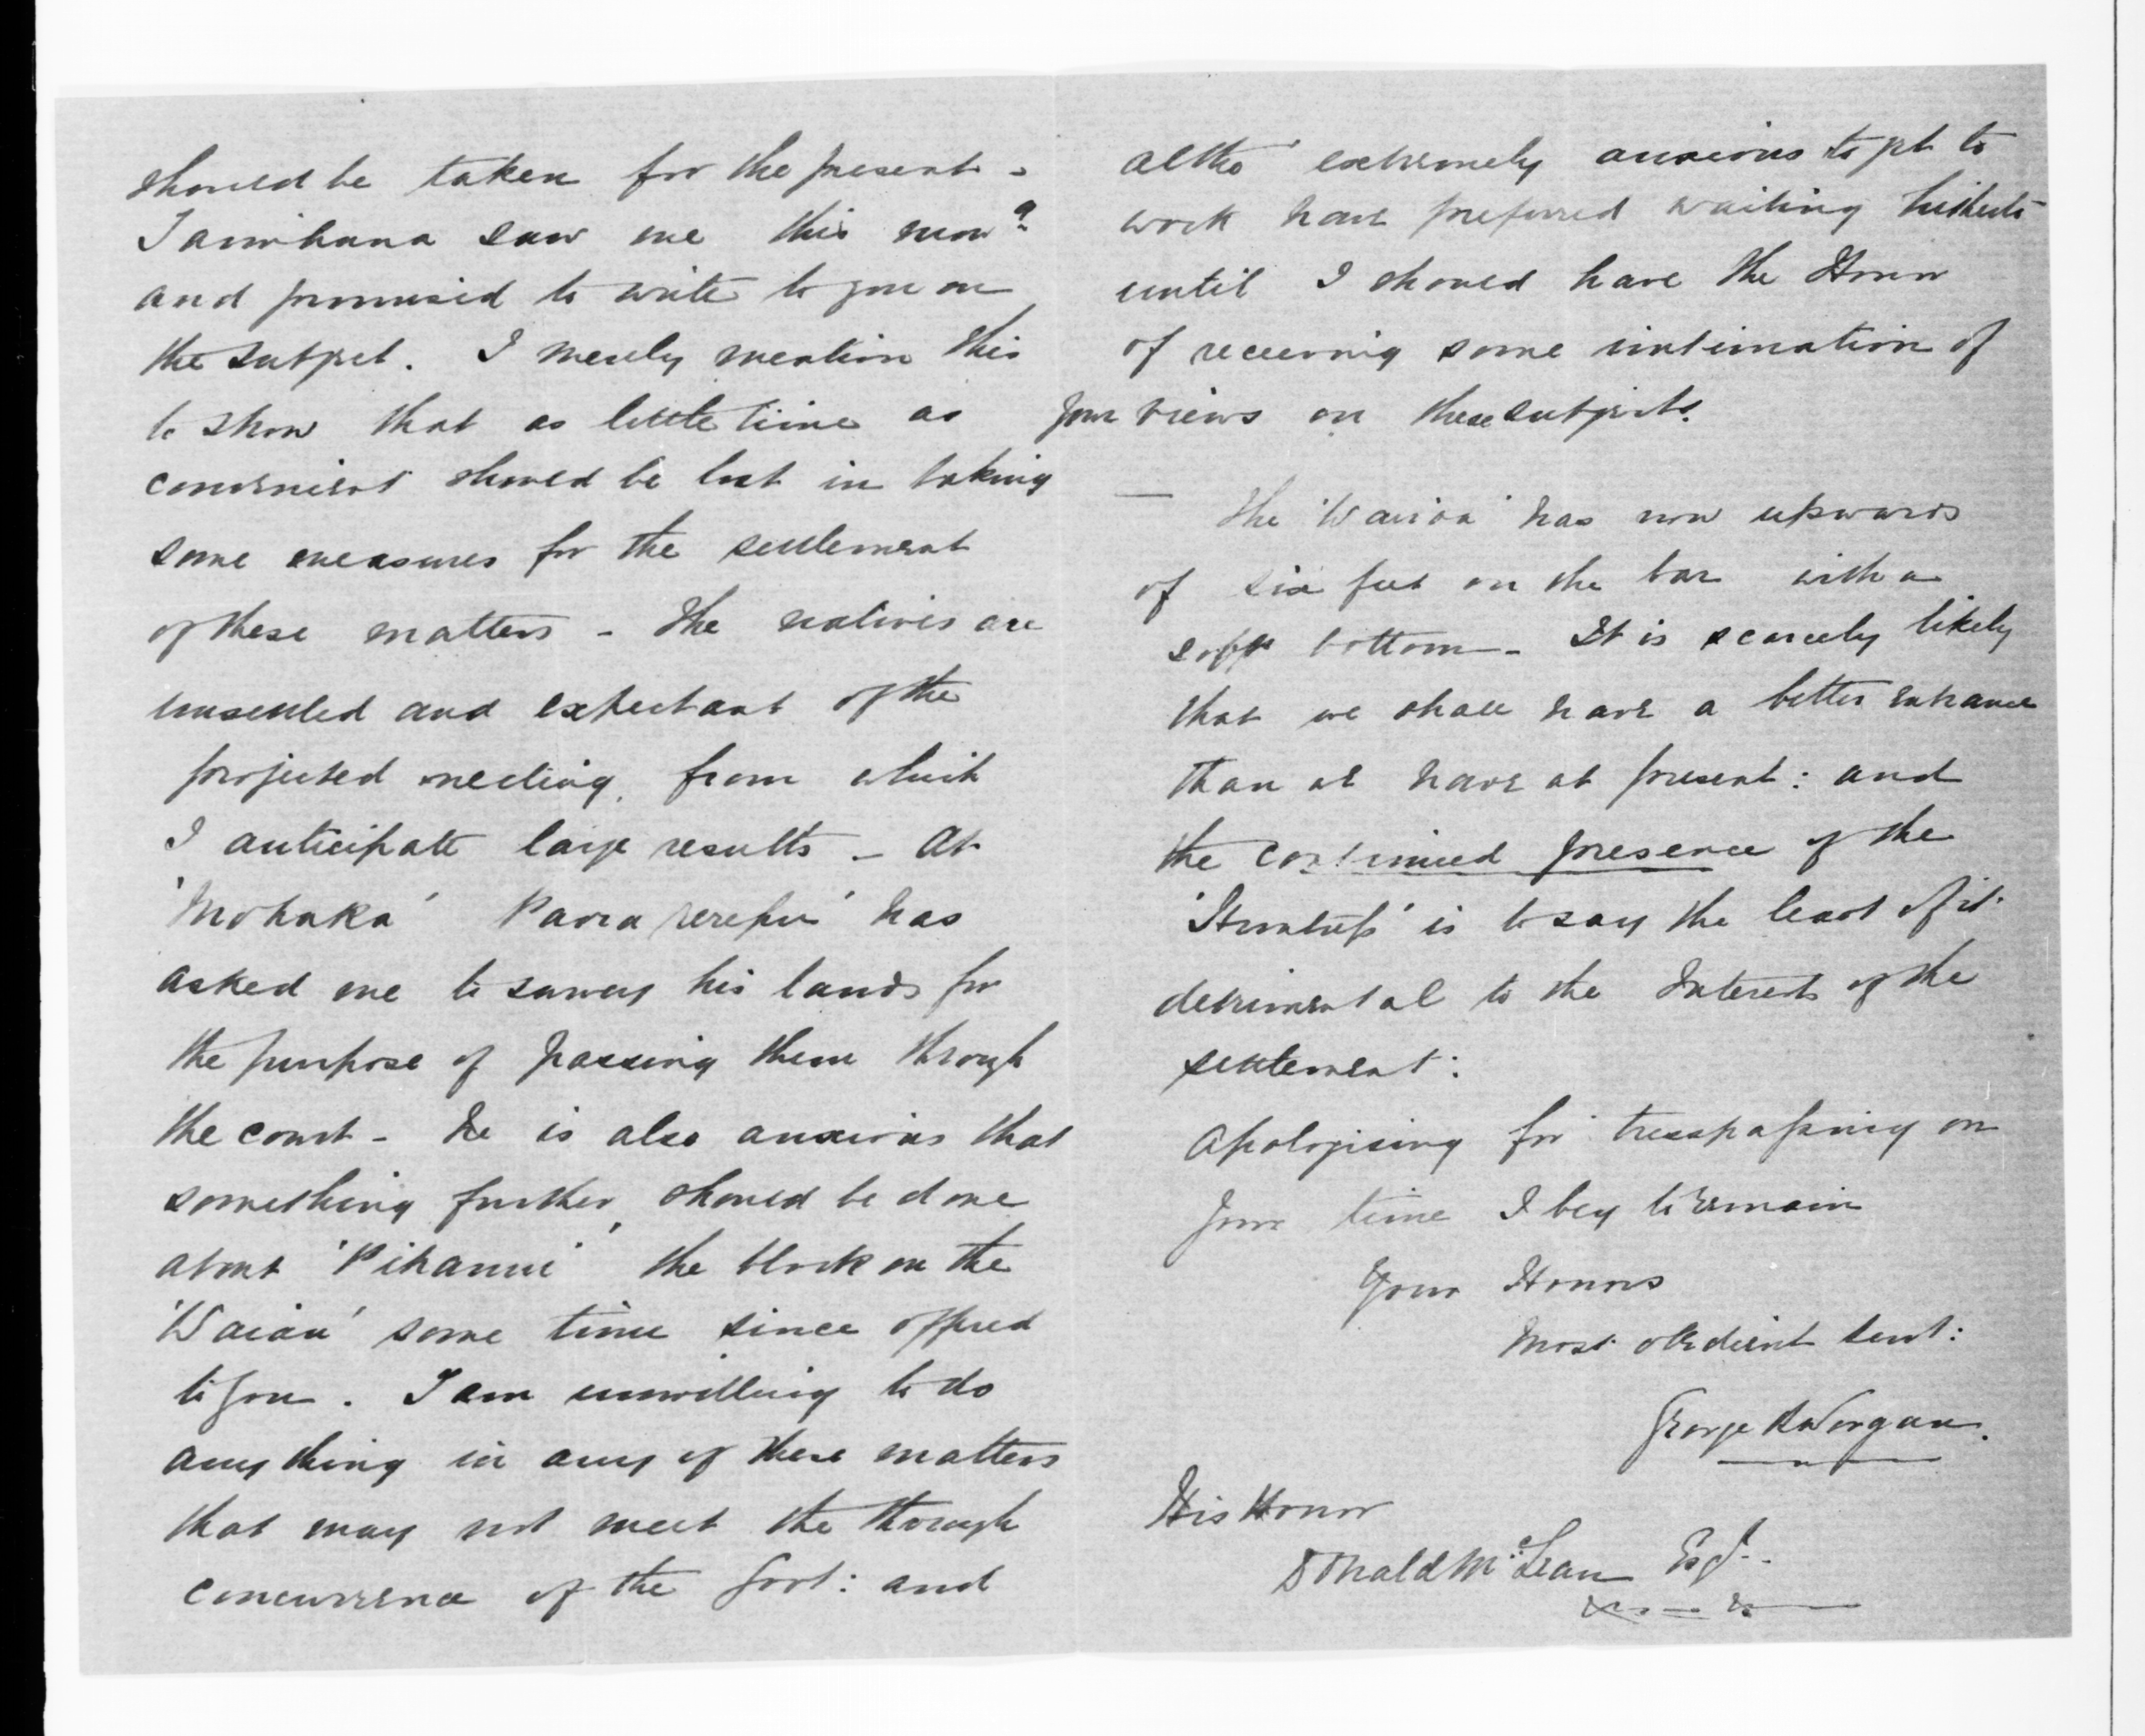 should be taken for the present -
Tamihana saw me this morng
and promised to write to you on
the subject. I merely mention this
to show that as little time as
convenient should be lost in taking
some measures for the settlement
of these matters - The natives are
unsettled and expectant of the
projected meeting, from which
I anticipate large results - At
'Mohaka' has
asked me to survey his lands for
the purpose of passing them through
the court - He is also anxious that
something further should be done
about 'Pihanui' the block on the
'Waiau' some time since offered
to you. I am unwilling to do
any thing in any of these matters
that may not meet the through
concurrence of the Govt: and
altho' extremely anxious to get to
work have preferred waiting hitherto
until I should have the Honor
of receiving some intimation of
your views on these subjects.
— The 'Wairoa' has now upwards
of six feet on the bar with a
soft bottom - It is scarcely likely
that we shall have a better entrance
than we have at present: and
the continued presence of the
'Sturtcup' is to say the least of it
detrimental to the Interests of the
settlement:
Apologising for tresspassing on
your time I beg to remain
Your Honors
Most obedient Servt:
George Worgan.
His Honor
Donald McLean Esqr.